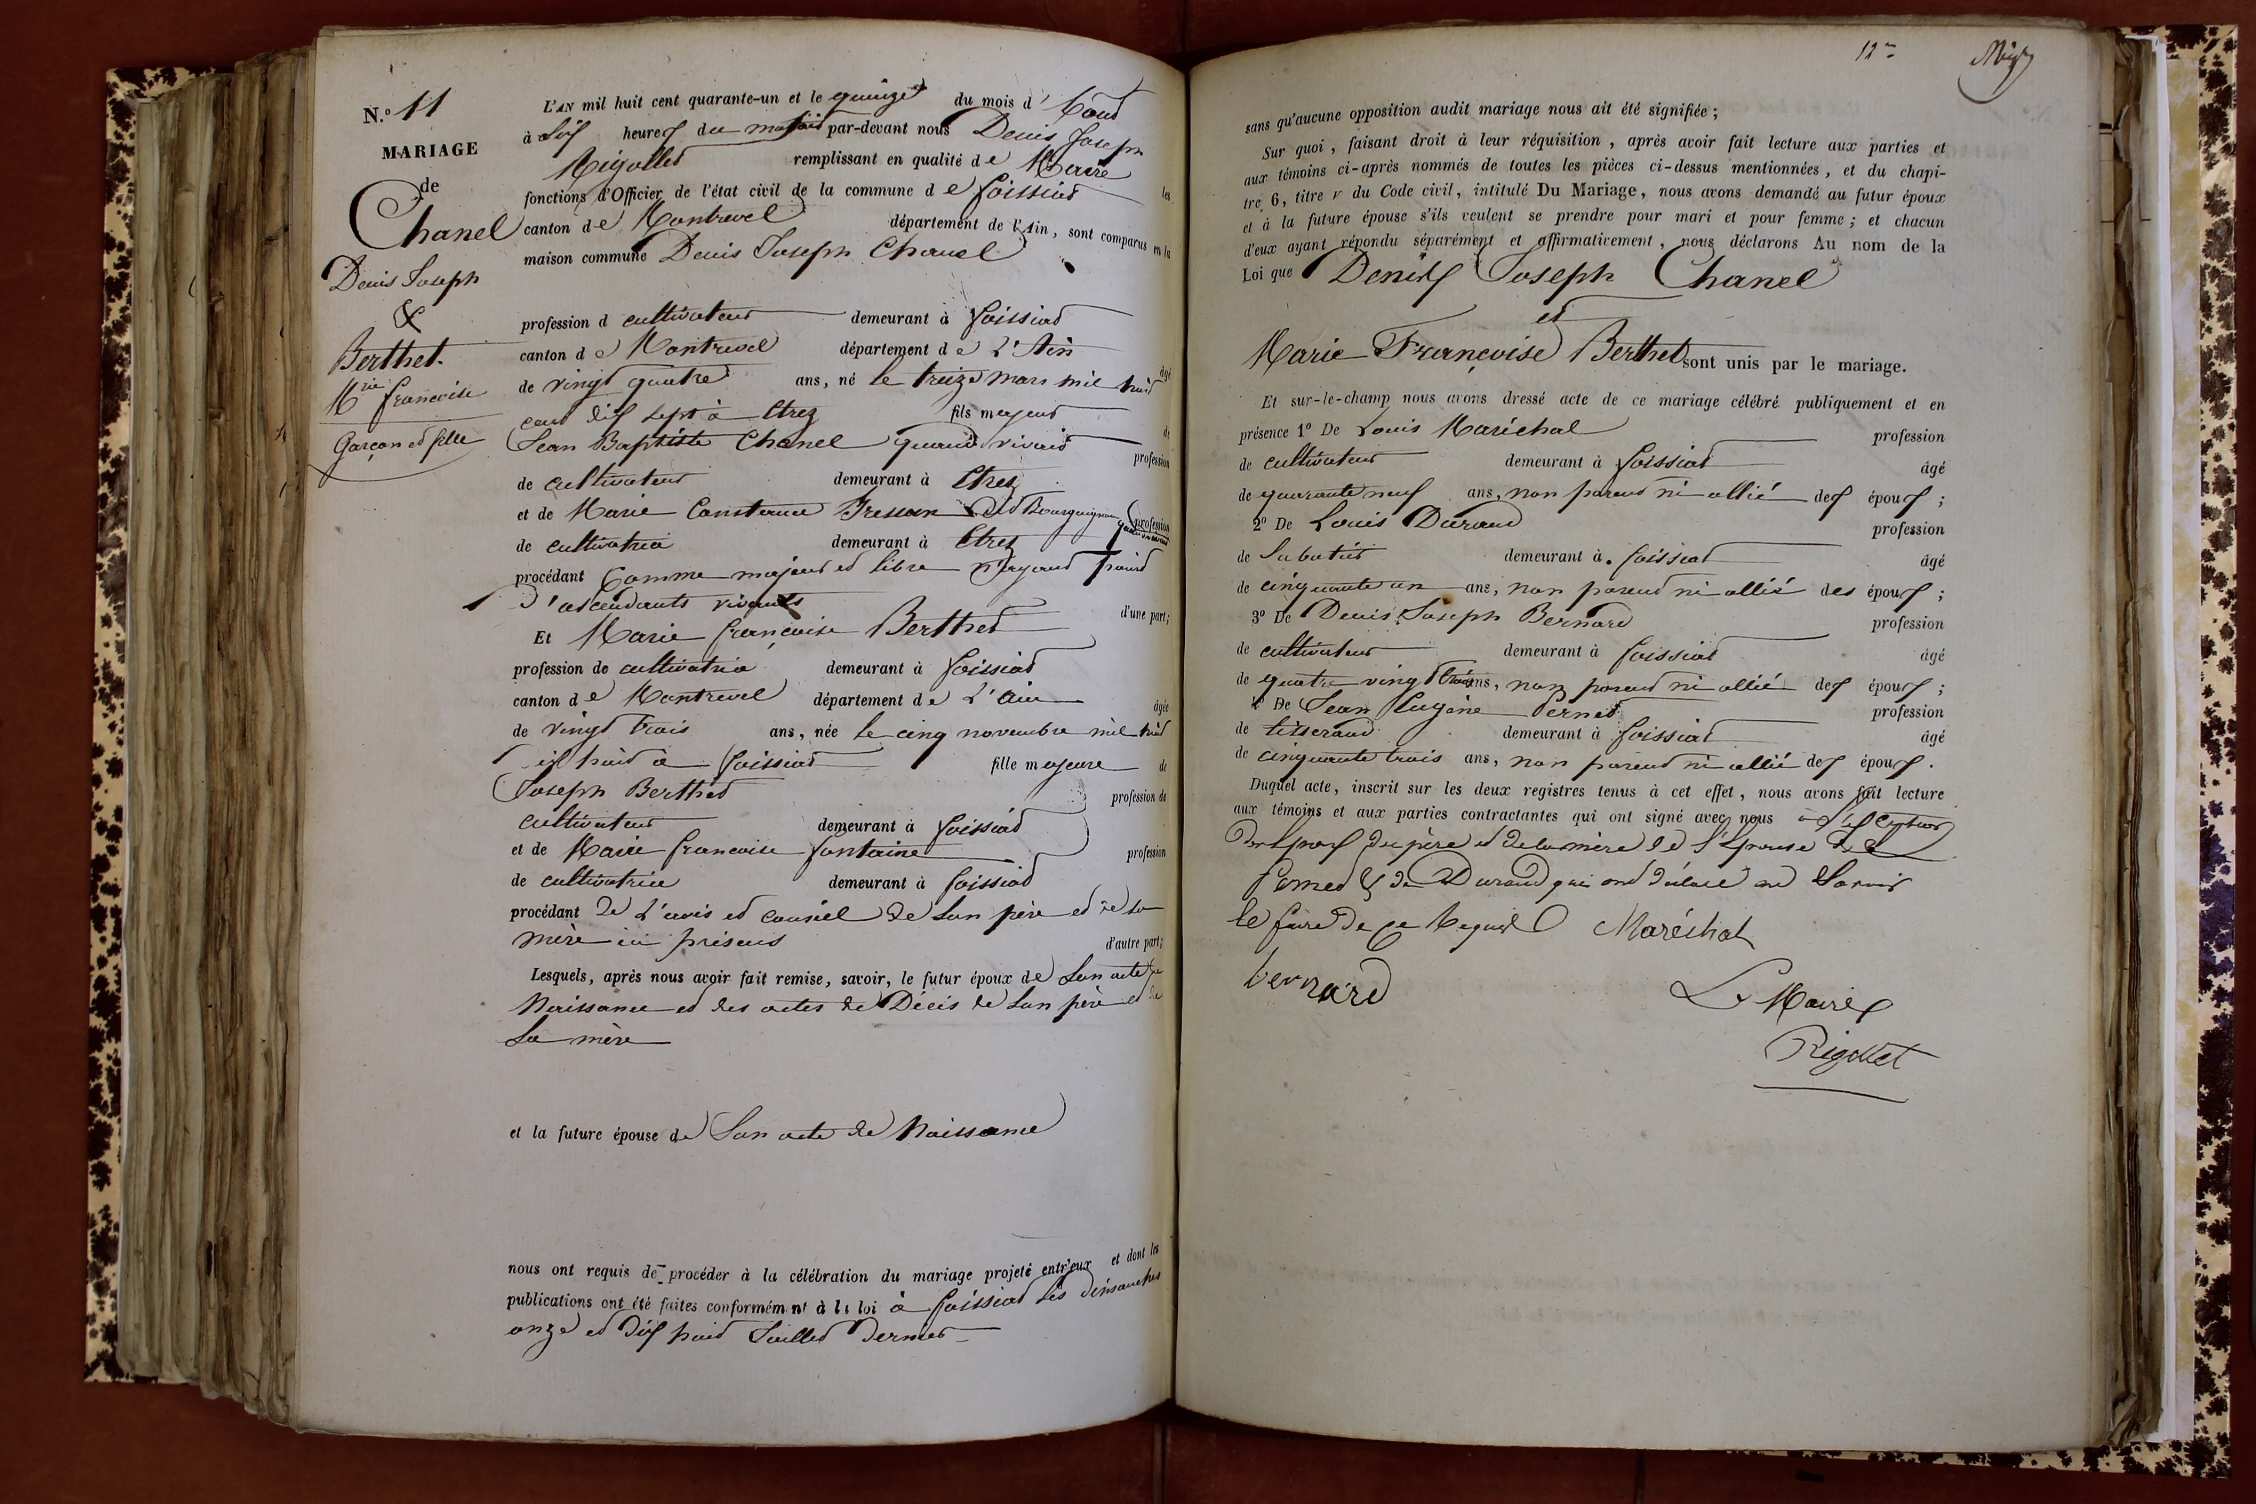 N.º 11
MARIAGE
de
Chanel
Denis Joseph
&
Berthet.
Mrie francoise
Garçon et fille
L'AN mil huit cent quarante-un et le quinze du mois d'Aout
à dix heures du matin par-devant nous Denis Joseph
Rigollet remplissant en qualité de Maire les
fonctions d'Officier de l'état civil de la commune de foissiat
canton de Montrevel département de l'Ain, sont comparus en la
maison commune Denis Joseph Chanel
profession d cultivateur demeurant à foissiat
canton de Montrevel département de L'Ain âgé
de vingt quatre ans, né le treize mars mil huit
cent dix sept à Etrez fils majeur de
Jean Baptiste Chanel quand vivait profession
de cultivateur demeurant à Etrez
et de Marie Constance Bressan dit Bourguignon quand vivait profession
de cultivatrice demeurant à Etrez
procédant Comme majeur et libre n'ayant point
d'ascendants vivants d'une part;
Et Marie françoise Berthet
profession de cultivatrice demeurant à foissiat
canton de Montrevel département de L'ain âgée
de vingt trois ans, née le cinq novembre mil huit
dix huit à foissiat fille majeure de
Joseph Berthet profession de
cultivateur demeurant à foissiat
et de Marie francoise fontaine profession
de cultivatrice demeurant à foissiat
procédant de L'avis et conseil de Son père et de sa
mère ici présens d'autre part;
Lesquels, après nous avoir fait remise, savoir, le futur époux de Son acte de
Naissance et des actes de Décès de Son père et de
Sa mère
et la future épouse de Son acte de Naissance
nous ont requis de procéder à la célébration du mariage projeté entr'eux et dont les
publications ont été faites conformément à la loi à foissiat les dimanches
onze et dix huit Juillet dernier
12
sans qu'aucune opposition audit mariage nous ait été signifiée;
Sur quoi, faisant droit à leur réquisition, après avoir fait lecture aux parties et
aux témoins ci-après nommés de toutes les pièces ci-dessus mentionnées, et du chapi-
tre 6, titre v du Code civil, intitulé Du Mariage, nous avons demandé au futur époux
et à la future épouse s'ils veulent se prendre pour mari et pour femme; et chacun
d'eux ayant répondu séparément et affirmativement, nous déclarons Au nom de la
Loi que Denis Joseph Chanel
et
Marie Françoise Berthet sont unis par le mariage.
Et sur-le-champ nous avons dressé acte de ce mariage célébré publiquement et en
présence 1º De Louis Maréchal profession
de cultivateur demeurant à foissiat âgé
de quarante neuf ans, non parent ni allié des époux;
2º De Louis Durand profession
de Sabotier demeurant à foissiat âgé
de cinquante un ans, non parent ni allié des époux;
3º De Denis Joseph Bernard profession
de cultivateur demeurant à foissiat âgé
de quatre vingt ans, non parent ni allié des époux;
4º De Jean Eugène Pernet profession
de tisserand demeurant à foissiat âgé
de cinquante trois ans, non parent ni allié des époux.
Duquel acte, inscrit sur les deux registres tenus à cet effet, nous avons fait lecture
aux témoins et aux parties contractantes qui ont signé avec nous à L'exception
Des Epoux du père et de la mère de L'Epouse de
Pernet & de Durand qui ont déclaré ne Savoir
le faire de ce Requis Maréchal
bernard
Le Maire
Rigollet